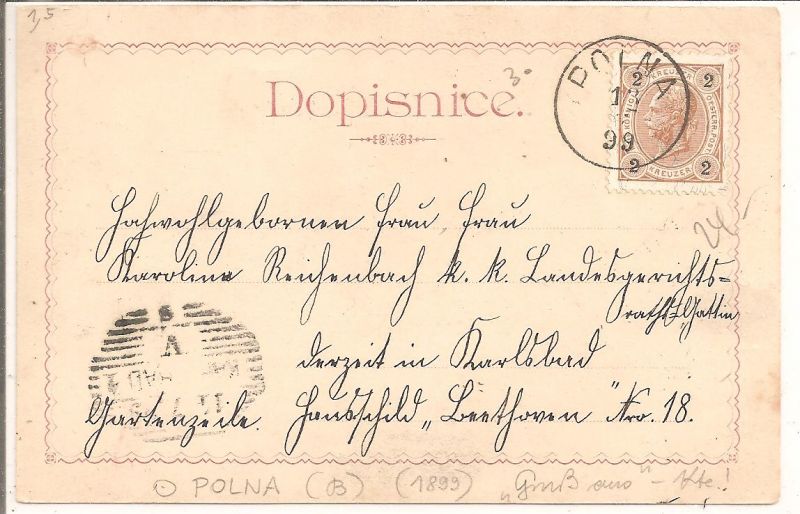 1,5-
Dopisnice.
3-
POLNA
1
99
2 KREUZER 2
KÖNIGL. OESTERR. POST
2 KREUZER 2
24-
Hochwohlgebornen Frau, Frau
Karoline Reichenbach k. k. Landesgerichts-
raths-Gattin
derzeit in Karlsbad
Gartenzeile. Hausschild „Beethoven" Nro. 18.
⊙ POLNA (B) (1899) „Gruß aus" - Kte.!